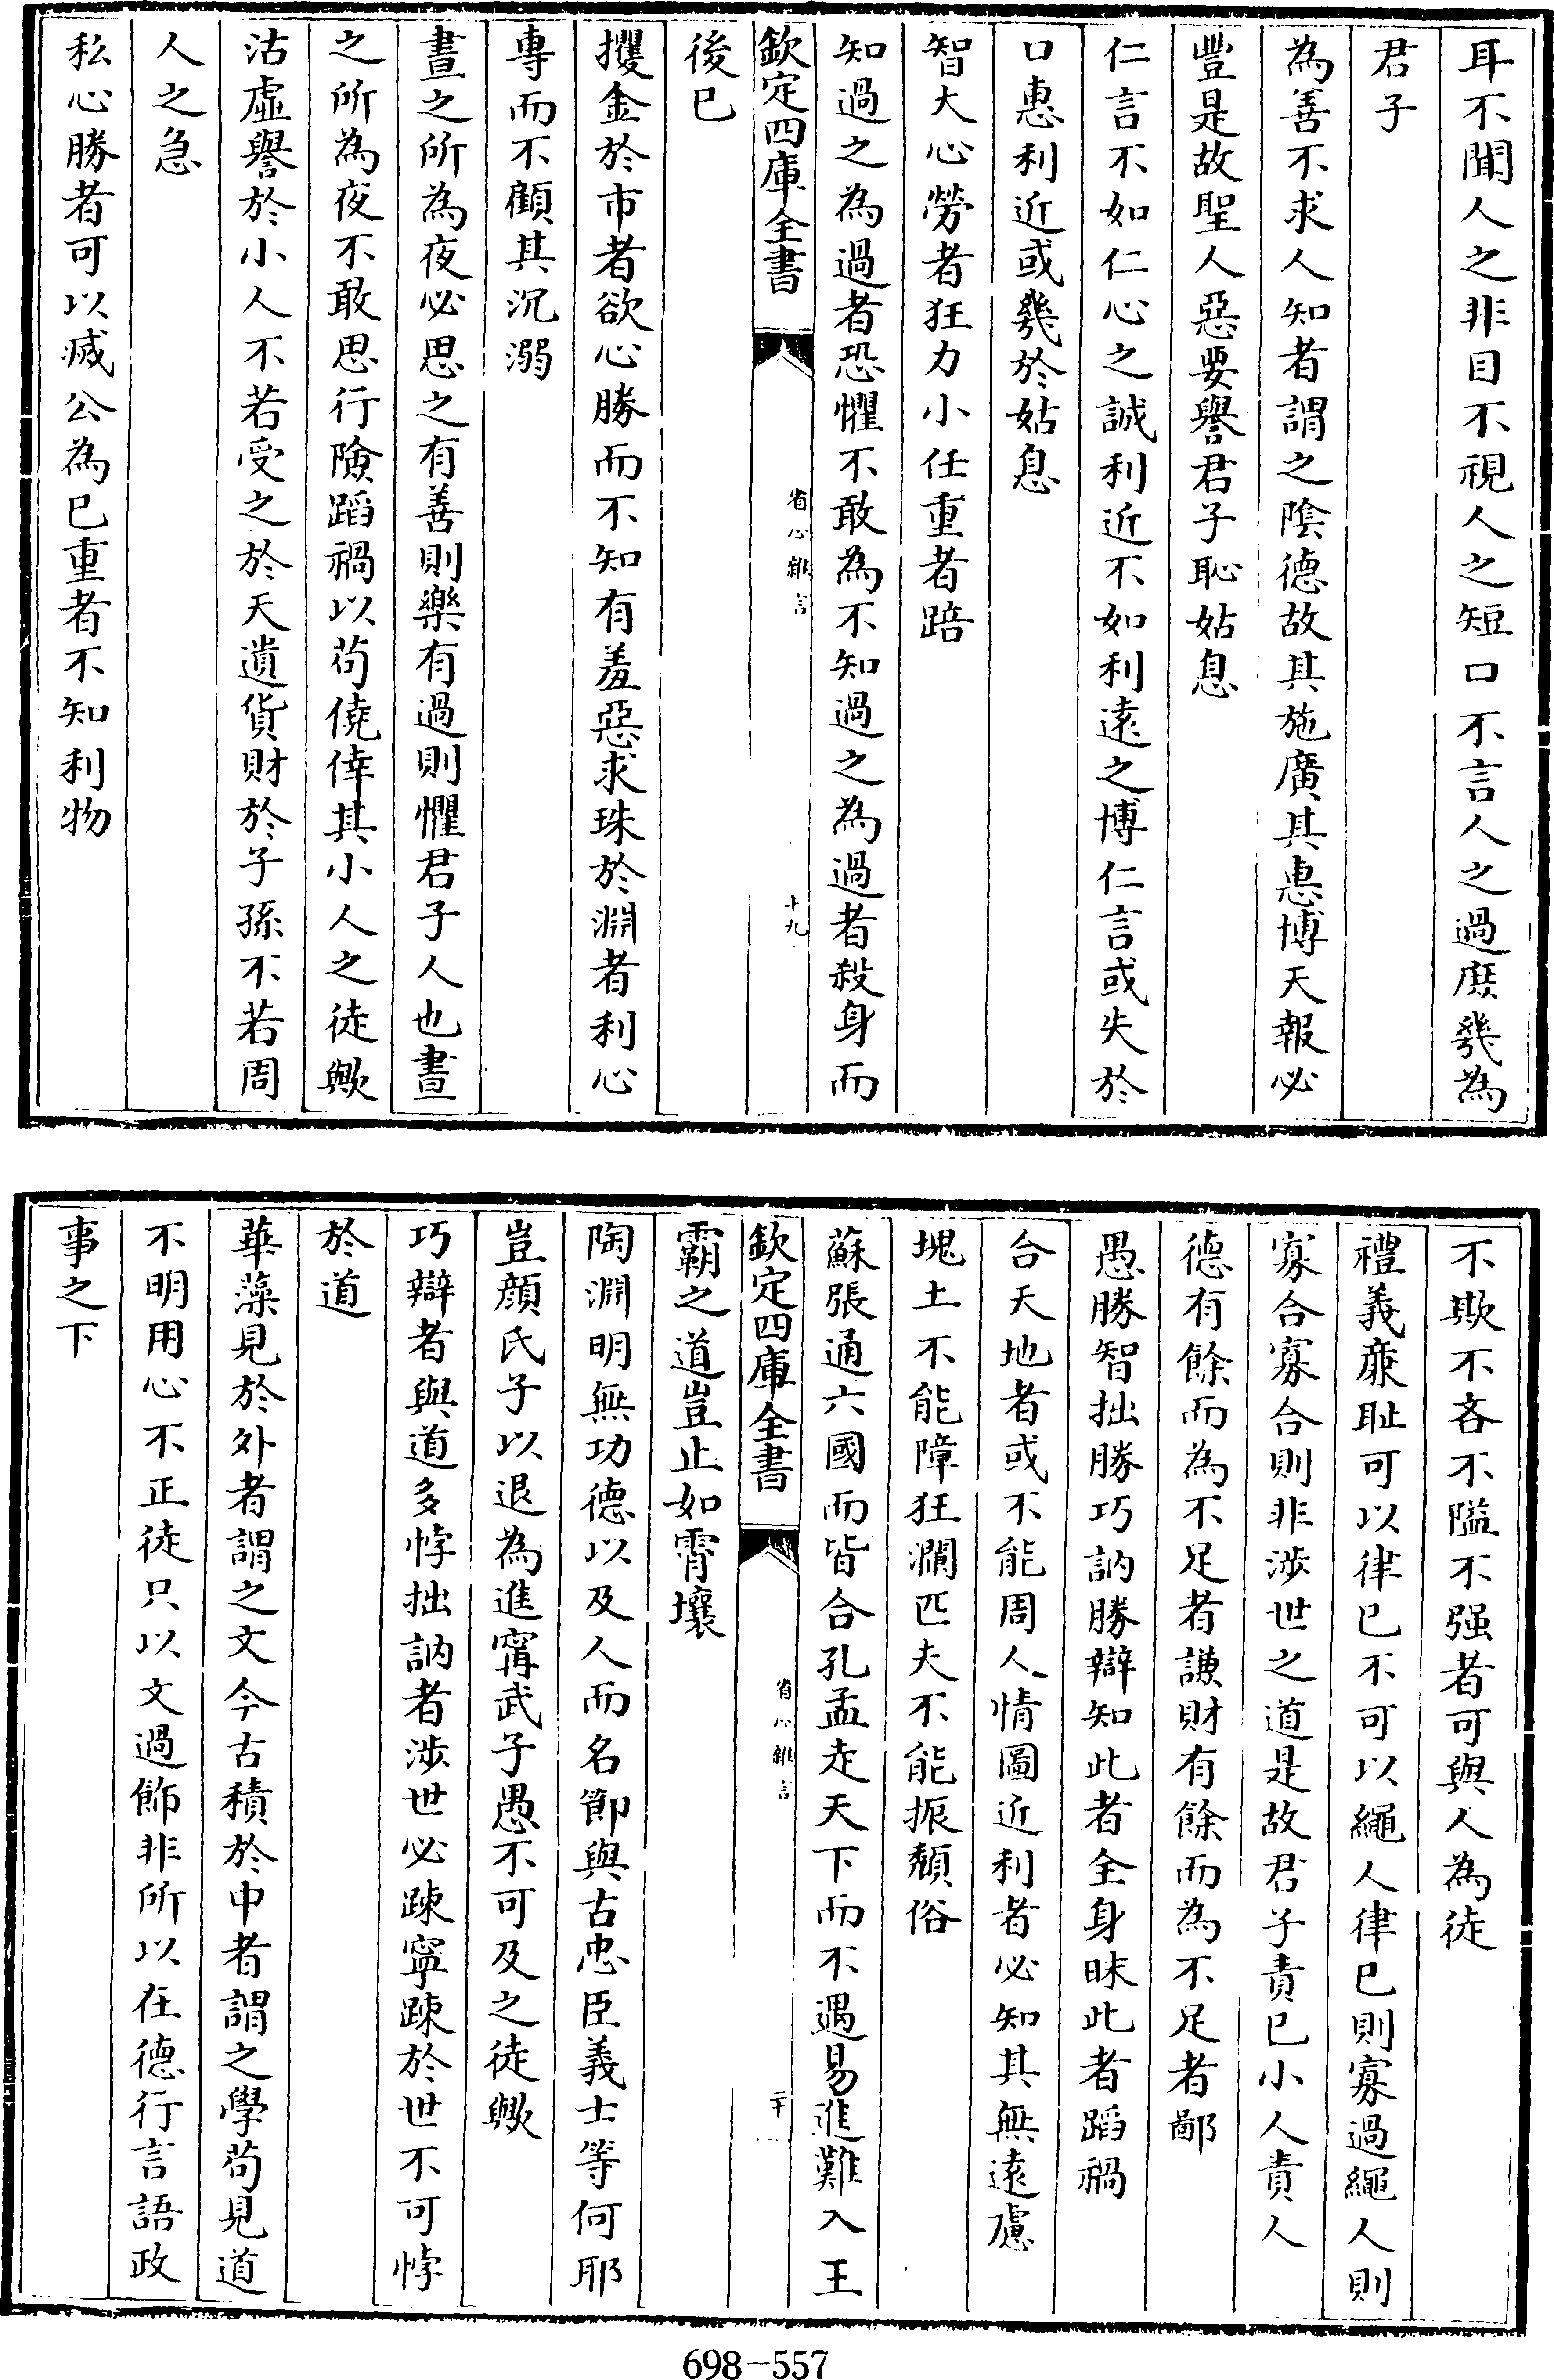 耳不聞人之非目不視人之短口不言人之過庶幾為
君子
為善不求人知者謂之陰德故其施廣其惠博天報必
豐是故聖人惡要譽君子恥姑息
仁言不如仁心之誠利近不如利遠之博仁言或失於
口惠利近或幾於姑息
智大心勞者狂力小任重者踣
知過之為過者恐懼不敢為不知過之為過者殺身而
欽定四庫全書
省心雜言
十九
後已
攫金於市者欲心勝而不知有羞惡求珠於淵者利心
專而不顧其沉溺
晝之所為夜必思之有善則樂有過則懼君子人也晝
之所為夜不敢思行險蹈禍以茍僥倖其小人之徒歟
沽虛譽於小人不若受之於天遺貨財於子孫不若周
人之急
私心勝者可以滅公為已重者不知利物
不欺不吝不隘不强者可與人為徒
禮義亷耻可以律已不可以繩人律已則寡過繩人則
寡合寡合則非涉世之道是故君子責已小人責人
德有餘而為不足者謙財有餘而為不足者鄙
愚勝智拙勝巧訥勝辯知此者全身昧此者蹈禍
合天地者或不能周人情圖近利者必知其無遠慮
塊土不能障狂瀾匹夫不能振頹俗
蘇張通六國而皆合孔孟走天下而不遇易進難入王
欽定四庫全書
省心雜言
二十
霸之道豈止如霄壤
陶淵明無功德以及人而名節與古忠臣義士等何耶
豈顔氏子以退為進甯武子愚不可及之徒歟
巧辯者與道多悖拙訥者涉世必踈寧踈於世不可悖
於道
華藻見於外者謂之文今古積於中者謂之學茍見道
不明用心不正徒只以文過飾非所以在德行言語政
事之下
698-557